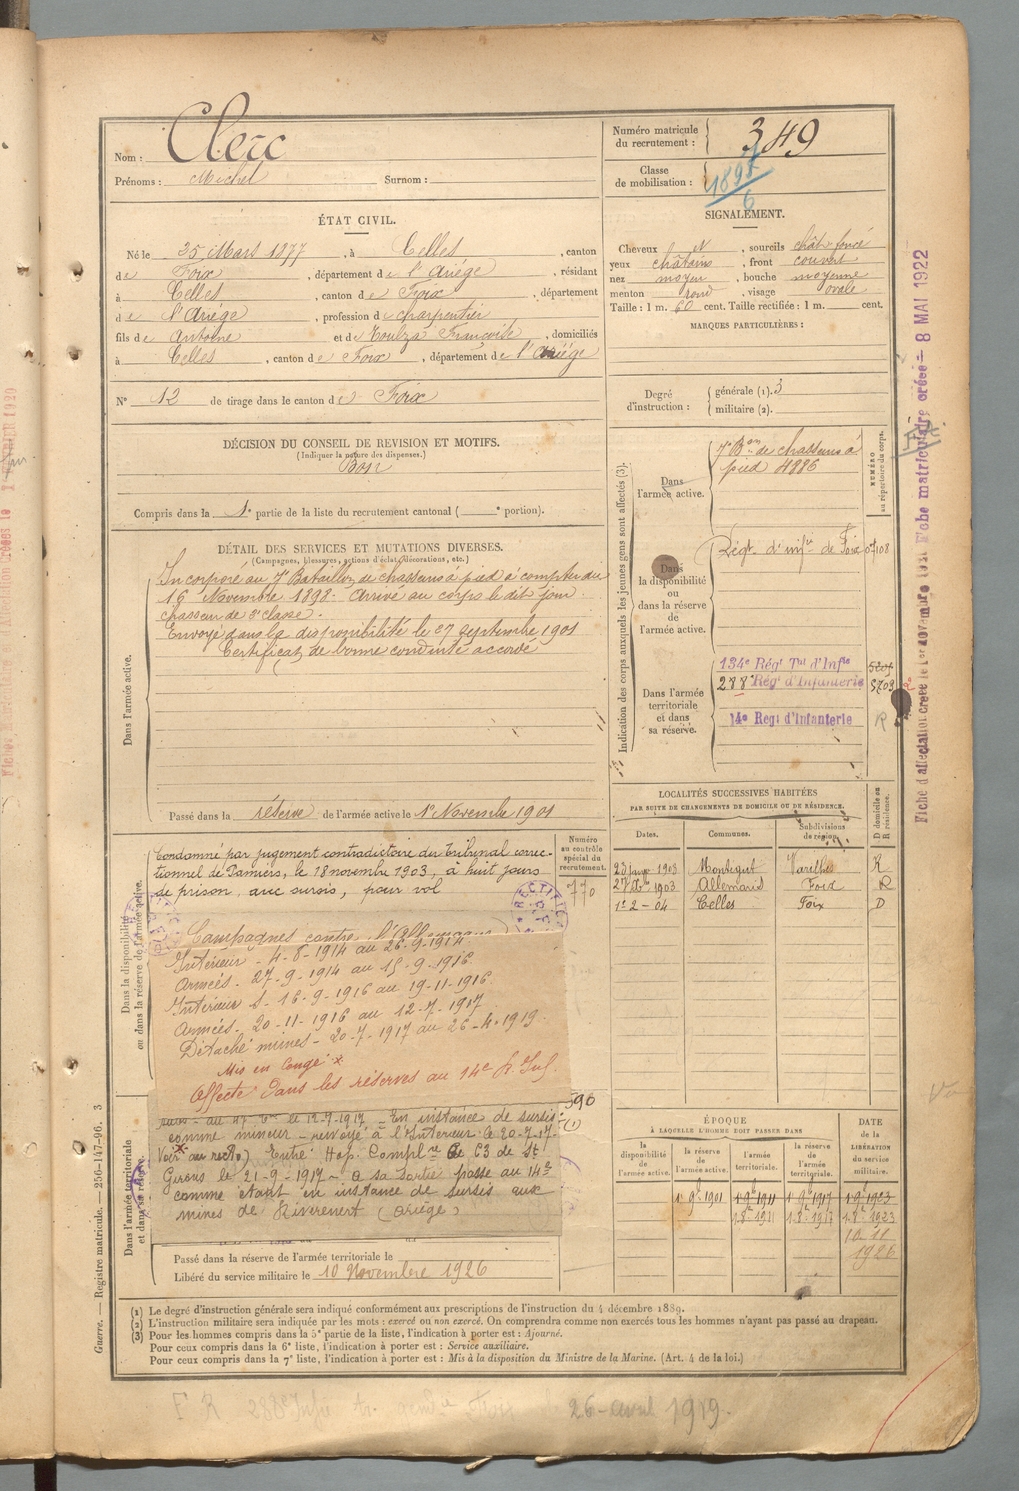 Nom : Clerc
Prénoms : Michel Surnom :
Numéro matricule du recrutement : 349
Classe de mobilisation : 1897/6
ÉTAT CIVIL.
Né le 25 Mars 1877, à Celles, canton
de Foix, département de l'Ariége, résidant
à Celles, canton de Foix, département
de l'Ariége, profession de charpentier
fils de Antoine et de Toulza Françoise, domiciliés
à Celles, canton de Foix, département de l'Ariége
N° 12 de tirage dans le canton de Foix
SIGNALEMENT.
Cheveux N, sourcils chât. foncé
yeux châtains, front couvert
nez moyen, bouche moyenne
menton rond, visage ovale
Taille : 1 m. 60 cent. Taille rectifiée : 1 m. cent.
MARQUES PARTICULIÈRES :
Degré d'instruction : générale (1). 3
militaire (2).
DÉCISION DU CONSEIL DE REVISION ET MOTIFS.
(Indiquer la nature des dispenses.)
Bon
Compris dans la 1e partie de la liste du recrutement cantonal ( e portion).
DÉTAIL DES SERVICES ET MUTATIONS DIVERSES.
(Campagnes, blessures, actions d'éclat, décorations, etc.)
Dans l'armée active.
Incorporé au 7e Bataillon de chasseurs à pied à compter du
16 Novembre 1898. Arrivé au corps le dit jour.
chasseur de 2e classe.
Envoyé dans la disponibilité le 27 septembre 1901
Certificat de bonne conduite accordé
Passé dans la réserve de l'armée active le 1er Novembre 1901
Dans la disponibilité ou dans la réserve de l'armée active.
Condamné par jugement contradictoire du Tribunal correc-
tionnel de Pamiers, le 18 novembre 1903, à huit jours
de prison, avec sursis, pour vol
Numéro au contrôle spécial du recrutement.
770
RECTIFIÉ
Campagnes contre l'Allemagne
Intérieur - 4-8-1914 au 26-9-1914
Armées - 27-9-1914 au 15-9-1916
Intérieur - 16-9-1916 au 19-11-1916
Armées - 20-11-1916 au 12-7-1917
Détaché mines - 20-7-1917 au 26-4-1919
Mis en congé *
Affecté dans les réserves au 14e R. Inf.
590
(1)
Dans l'armée territoriale et dans sa réserve.
le 12-7-1917 - En instance de sursis
comme mineur - renvoyé à l'Intérieur le 20-7-17-
Voir au recto) Entré Hop. Complre 63 de St
Girons le 21-9-1917 - a sa sortie passe au 14e
comme étant en instance de sursis aux
mines de Riverenert (Ariège)
Passé dans la réserve de l'armée territoriale le
Libéré du service militaire le 10 Novembre 1926
Indication des corps auxquels les jeunes gens sont affectés (3).
NUMÉRO au répertoire du corps.
Dans l'armée active.
7e Bon de chasseurs à
pied 4886
Dans la disponibilité ou dans la réserve de l'armée active.
Régt. d'infie de Foix 0/108
Dans l'armée territoriale et dans sa réserve.
134e Régt Tal d'Infie
288e Régt d'Infanterie 5709
14e Regt d'Infanterie R
LOCALITÉS SUCCESSIVES HABITÉES
PAR SUITE DE CHANGEMENTS DE DOMICILE OU DE RÉSIDENCE.
Dates. Communes. Subdivisions de région. D domicile ou R résidence.
1903 Montégut Varilhes R
1903 Allemand Foix R
1e 2-04 Celles Foix D
ÉPOQUE
À LAQUELLE L'HOMME DOIT PASSER DANS
la disponibilité de l'armée active. la réserve de l'armée active. l'armée territoriale. la réserve de l'armée territoriale. DATE de la LIBÉRATION du service militaire.
1er 9bre 1901 1er 9bre 1911 1er 9bre 1917 1er 9bre 1923
1.8bre 1911 1.8bre 1917 1.8bre 1923
10 11
1926
(1) Le degré d'instruction générale sera indiqué conformément aux prescriptions de l'instruction du 4 décembre 1889.
(2) L'instruction militaire sera indiquée par les mots : exercé ou non exercé. On comprendra comme non exercés tous les hommes n'ayant pas passé au drapeau.
(3) Pour les hommes compris dans la 5e partie de la liste, l'indication à porter est : Ajourné.
Pour ceux compris dans la 6e liste, l'indication à porter est : Service auxiliaire.
Pour ceux compris dans la 7e liste, l'indication à porter est : Mis à la disposition du Ministre de la Marine. (Art. 4 de la loi.)
Guerre. — Registre matricule. — 256-147-96. 3
F R 288e Infie Foix le 26 avril 1919.
Fiche matriculaire créée le 8 MAI 1922